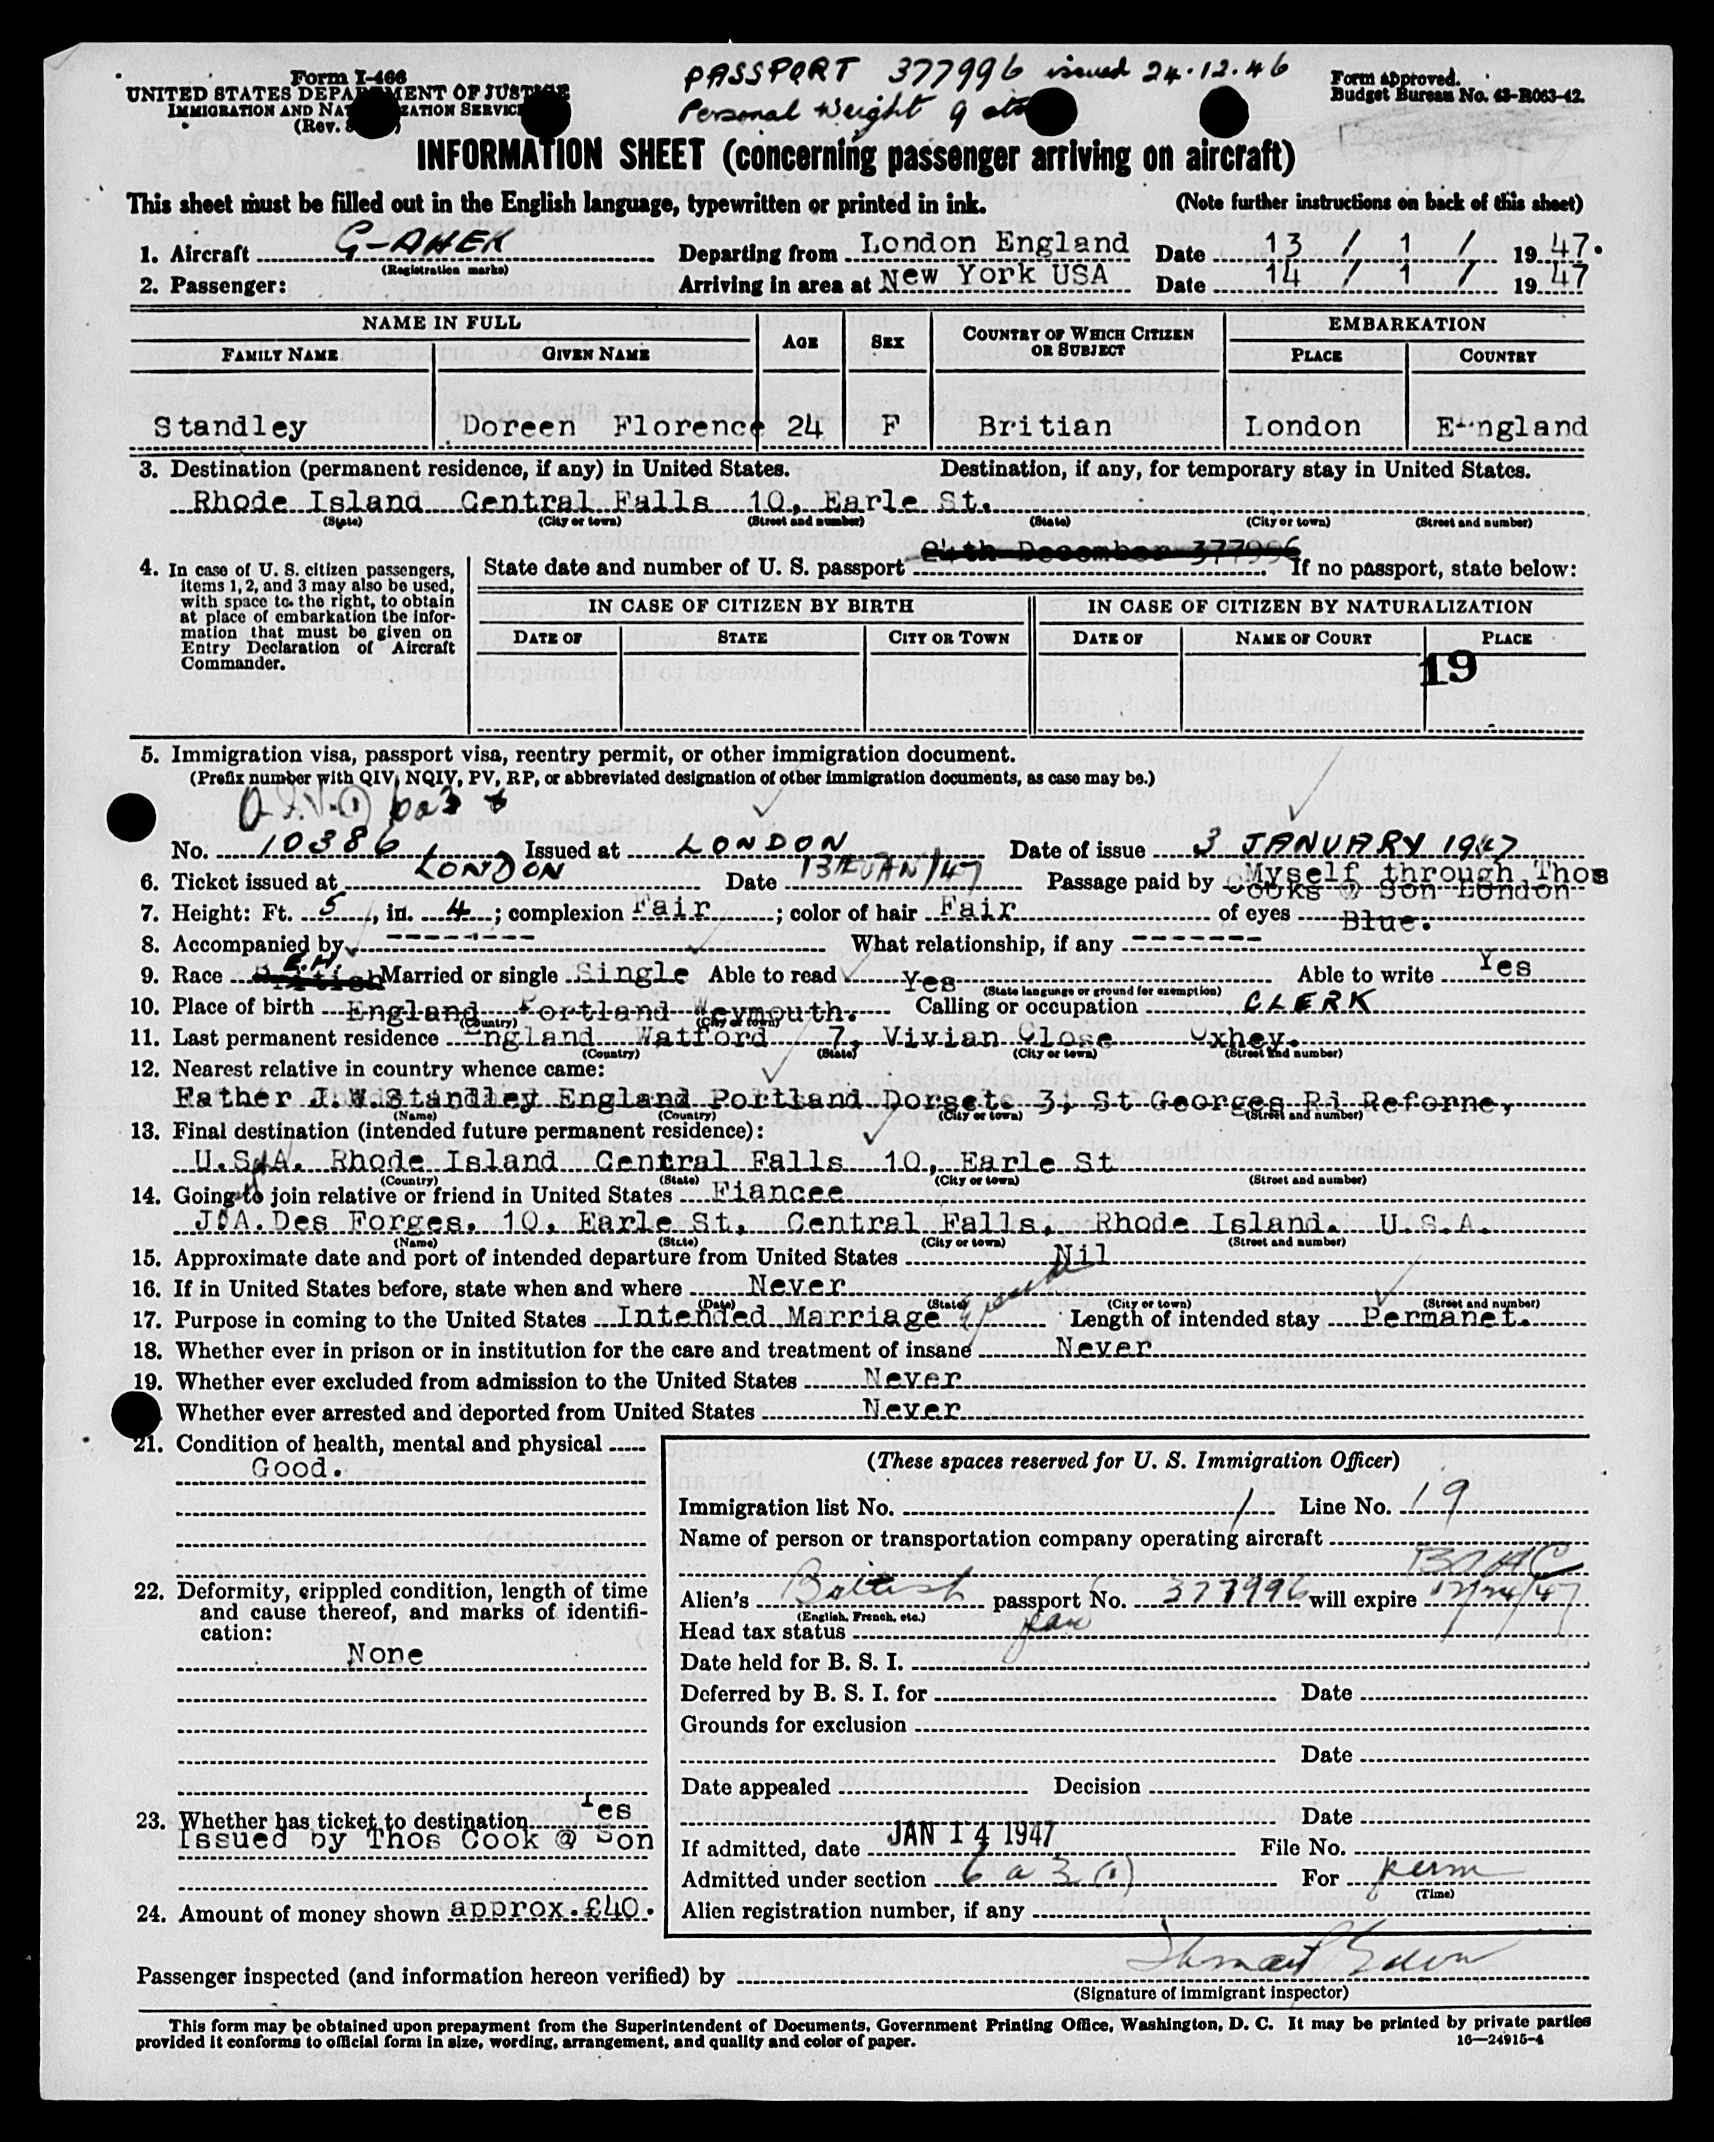 PASSPORT 377996 issued 24.12.46
Personal Weight 9
Form I-466
UNITED STATES DEPARTMENT OF JUSTICE
IMMIGRATION AND NATURALIZATION SERVICE
(Rev.
Form approved.
Budget Bureau No. 43-R063-42.
INFORMATION SHEET (concerning passenger arriving on aircraft)
This sheet must be filled out in the English language, typewritten or printed in ink. (Note further instructions on back of this sheet)
1. Aircraft G-AHEK Departing from London England Date 13 / 1 / 1947.
(Registration marks)
2. Passenger: Arriving in area at New York USA Date 14 / 1 / 1947
NAME IN FULL AGE SEX COUNTRY OF WHICH CITIZEN OR SUBJECT EMBARKATION
FAMILY NAME GIVEN NAME PLACE COUNTRY
Standley Doreen Florence 24 F Britian London England
3. Destination (permanent residence, if any) in United States. Destination, if any, for temporary stay in United States.
Rhode Island Central Falls 10, Earle St.
(State) (City or town) (Street and number) (State) (City or town) (Street and number)
24th December 377996
4. In case of U. S. citizen passengers, items 1, 2, and 3 may also be used, with space to the right, to obtain at place of embarkation the information that must be given on Entry Declaration of Aircraft Commander.
State date and number of U. S. passport If no passport, state below:
IN CASE OF CITIZEN BY BIRTH IN CASE OF CITIZEN BY NATURALIZATION
DATE OF STATE CITY OR TOWN DATE OF NAME OF COURT PLACE
19
5. Immigration visa, passport visa, reentry permit, or other immigration document.
(Prefix number with QIV, NQIV, PV, RP, or abbreviated designation of other immigration documents, as case may be.)
No. 10386 Issued at LONDON Date of issue 3 JANUARY 1947
6. Ticket issued at LONDON Date 13th JAN/47 Passage paid by Myself through Thos
Cooks @ Son London
7. Height: Ft. 5, in. 4; complexion Fair; color of hair Fair of eyes Blue.
8. Accompanied by -------- What relationship, if any --------
9. Race E.H. British Married or single Single Able to read Yes Able to write Yes
(State language or ground for exemption)
10. Place of birth England Portland Weymouth. Calling or occupation CLERK
(Country) (City or town)
11. Last permanent residence England Watford 7, Vivian Close Oxhey.
(Country) (State) (City or town) (Street and number)
12. Nearest relative in country whence came:
Father J.W.Standley England Portland Dorset. 3, St Georges Rd Reforne,
(Name) (Country) (City or town) (Street and number)
13. Final destination (intended future permanent residence):
U.S.A. Rhode Island Central Falls 10, Earle St
(Country) (State) (City or town) (Street and number)
14. Going to join relative or friend in United States Fiancee
J.A. Des Forges. 10, Earle St, Central Falls, Rhode Island. U.S.A.
(Name) (State) (City or town) (Street and number)
15. Approximate date and port of intended departure from United States Nil
16. If in United States before, state when and where Never
(Date) (State) (City or town) (Street and number)
17. Purpose in coming to the United States Intended Marriage Length of intended stay Permanet.
18. Whether ever in prison or in institution for the care and treatment of insane Never
19. Whether ever excluded from admission to the United States Never
Whether ever arrested and deported from United States Never
21. Condition of health, mental and physical
Good.
22. Deformity, crippled condition, length of time
and cause thereof, and marks of identifi-
cation:
None
23. Whether has ticket to destination Yes
Issued by Thos Cook @ Son
24. Amount of money shown approx. £40.
(These spaces reserved for U. S. Immigration Officer)
Immigration list No. 1 Line No. 19
Name of person or transportation company operating aircraft
BOAC
Alien's British passport No. 377996 will expire 12/24/47
(English, French, etc.)
Head tax status
Date held for B. S. I.
Deferred by B. S. I. for Date
Grounds for exclusion
Date
Date appealed Decision
Date
If admitted, date JAN 14 1947 File No.
Admitted under section 6 a 3 (1) For perm
(Time)
Alien registration number, if any
Passenger inspected (and information hereon verified) by
(Signature of immigrant inspector)
This form may be obtained upon prepayment from the Superintendent of Documents, Government Printing Office, Washington, D. C. It may be printed by private parties
provided it conforms to official form in size, wording, arrangement, and quality and color of paper. 16—24915-4